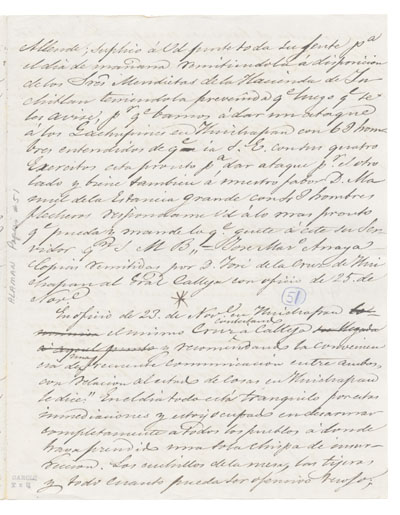 Allende; suplico á Ud junte toda su gente pª
el dia de mañana remitiendola á disposicion
de los Sres Mendietas de la Hacienda de
teniendola prevenida qe luego qe se
los avise, pr qe vamos á dar un ataque
a los Gachupines en Huichapan con 68 hom
bres entendidos de qe ia S. E. con sus quatro
Exercitos esta pronto pª dar ataque pr el otro
lado y tiene tambien á nuestro favor D. Ma
nuel de la Estancia grande con 38 hombres
flecheros respondame Ud a lo mas pronto
qe pueda y mande lo qe guste á este su Ser
vidor qe S M B = José Marª Anaya
Copias remitidas por D. José de la Cruz de Hui
chapan al Gral Calleja con oficio de 25 de
Nove
En oficio de 23 de Nove en Huichapan
el mismo Cruz á Calleja contestando
y recomendando la convenien
cia de muy frecuente comunicacion entre ambos,
con relacion al estado de cosas en Huichapan
le dice: "En el dia todo está tranquilo por estas
inmediaciones y estoy ocupado en desarmar
completamente a todos los pueblos á donde
haya prendido una sola chispa de insur
reccion. Los cuchillos de la mesa, las tijeras
y todo cuanto pueda ser ofensivo
51